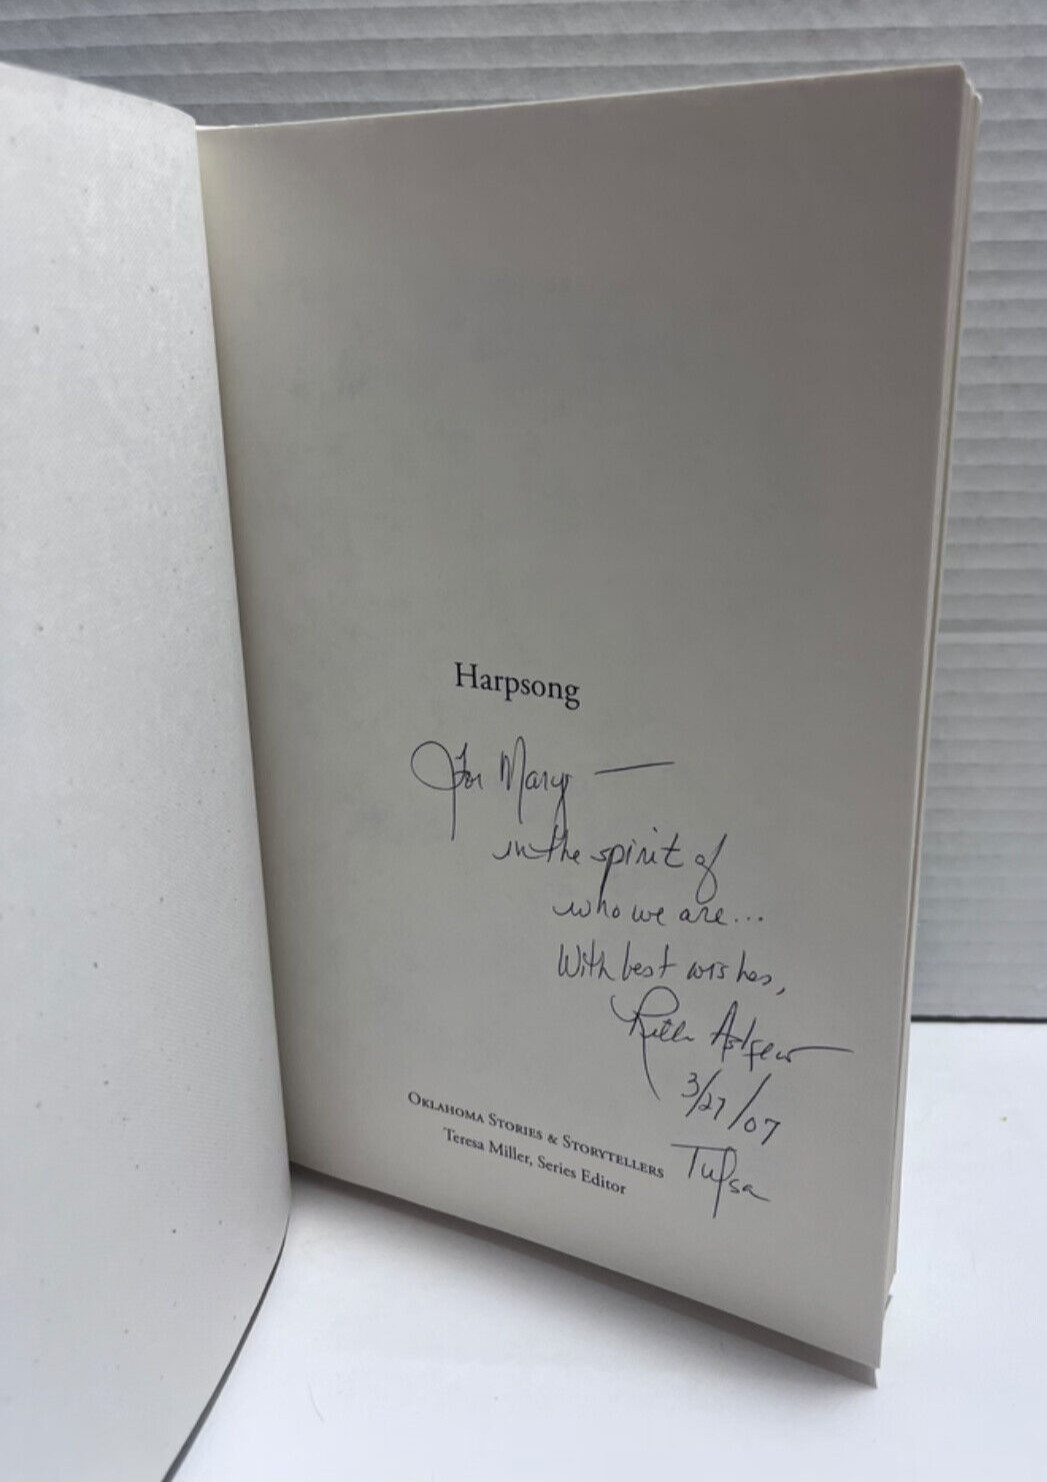 Harpsong
For Mary —
in the spirit of
who we are...
With best wishes,
Rilla Askew
3/27/07
Tulsa
OKLAHOMA STORIES & STORYTELLERS
Teresa Miller, Series Editor